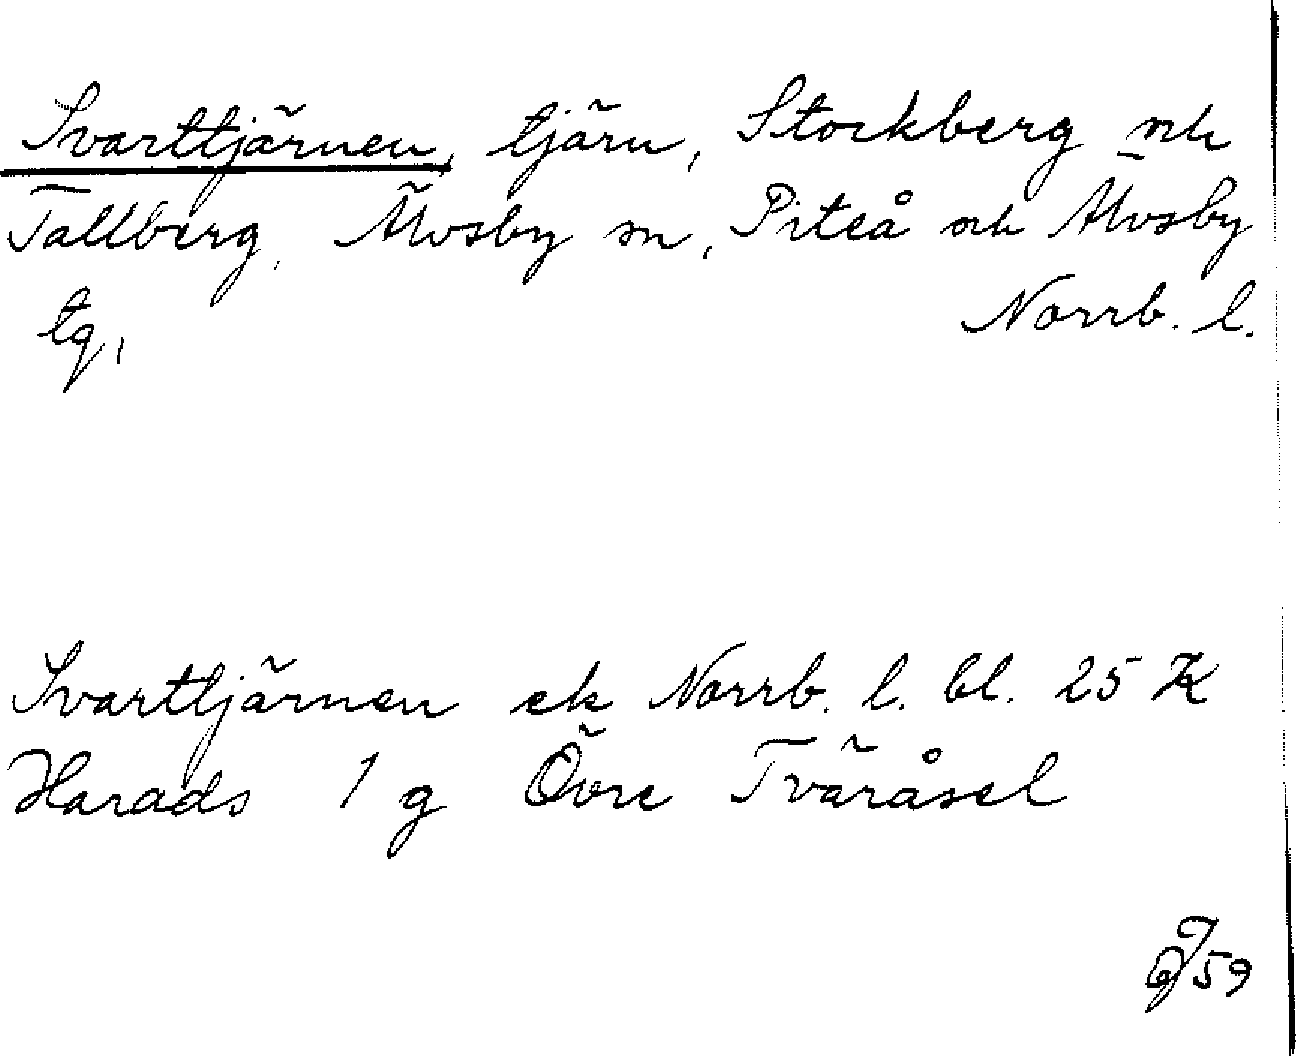 Svarttjärnen, tjärn, Stockberg och
Tallberg, Älvsby sn, Piteå och Älvsby
tg,
Norrb. l.
Svarttjärnen ek Norrb. l. bl. 25 K
Harads 1 g Övre Tväråsel
59